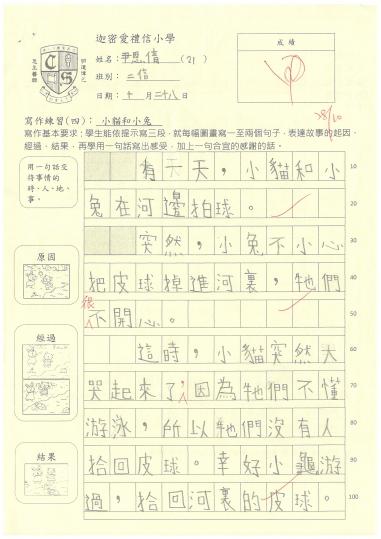 迦密愛禮信小學
姓名：尹思僖（21）
班別：二信
日期：十一月二十八日
成績
28/10
寫作練習(四)：小貓和小兔
寫作基本要求：學生能依提示寫三段，就每幅圖畫寫一至兩個句子，表達故事的起因、
經過、結果，再學用一句話寫出感受，加上一句合宜的感謝的話。
用一句話交
待事情的
時、人、地、
事。
有一天，小貓和小 10
兔在河邊拍球。 20
突然，小兔不小心 30
原因
把皮球掉進河裏，牠們 40
很不開心。 50
經過
這時，小貓突然大 60
哭起來了，因為牠們不懂 70
游泳，所以牠們沒有人 80
結果
拾回皮球。幸好小龜游
過，拾回河裏的皮球。 100